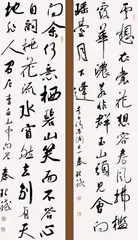 雲想衣裳花想容春風拂檻
露華濃若非群玉山頭見會向
瑤臺月下逢
問余何意棲碧山笑而不答心
自閑桃花流水窅然去別有天
地非人間 李白山中問答